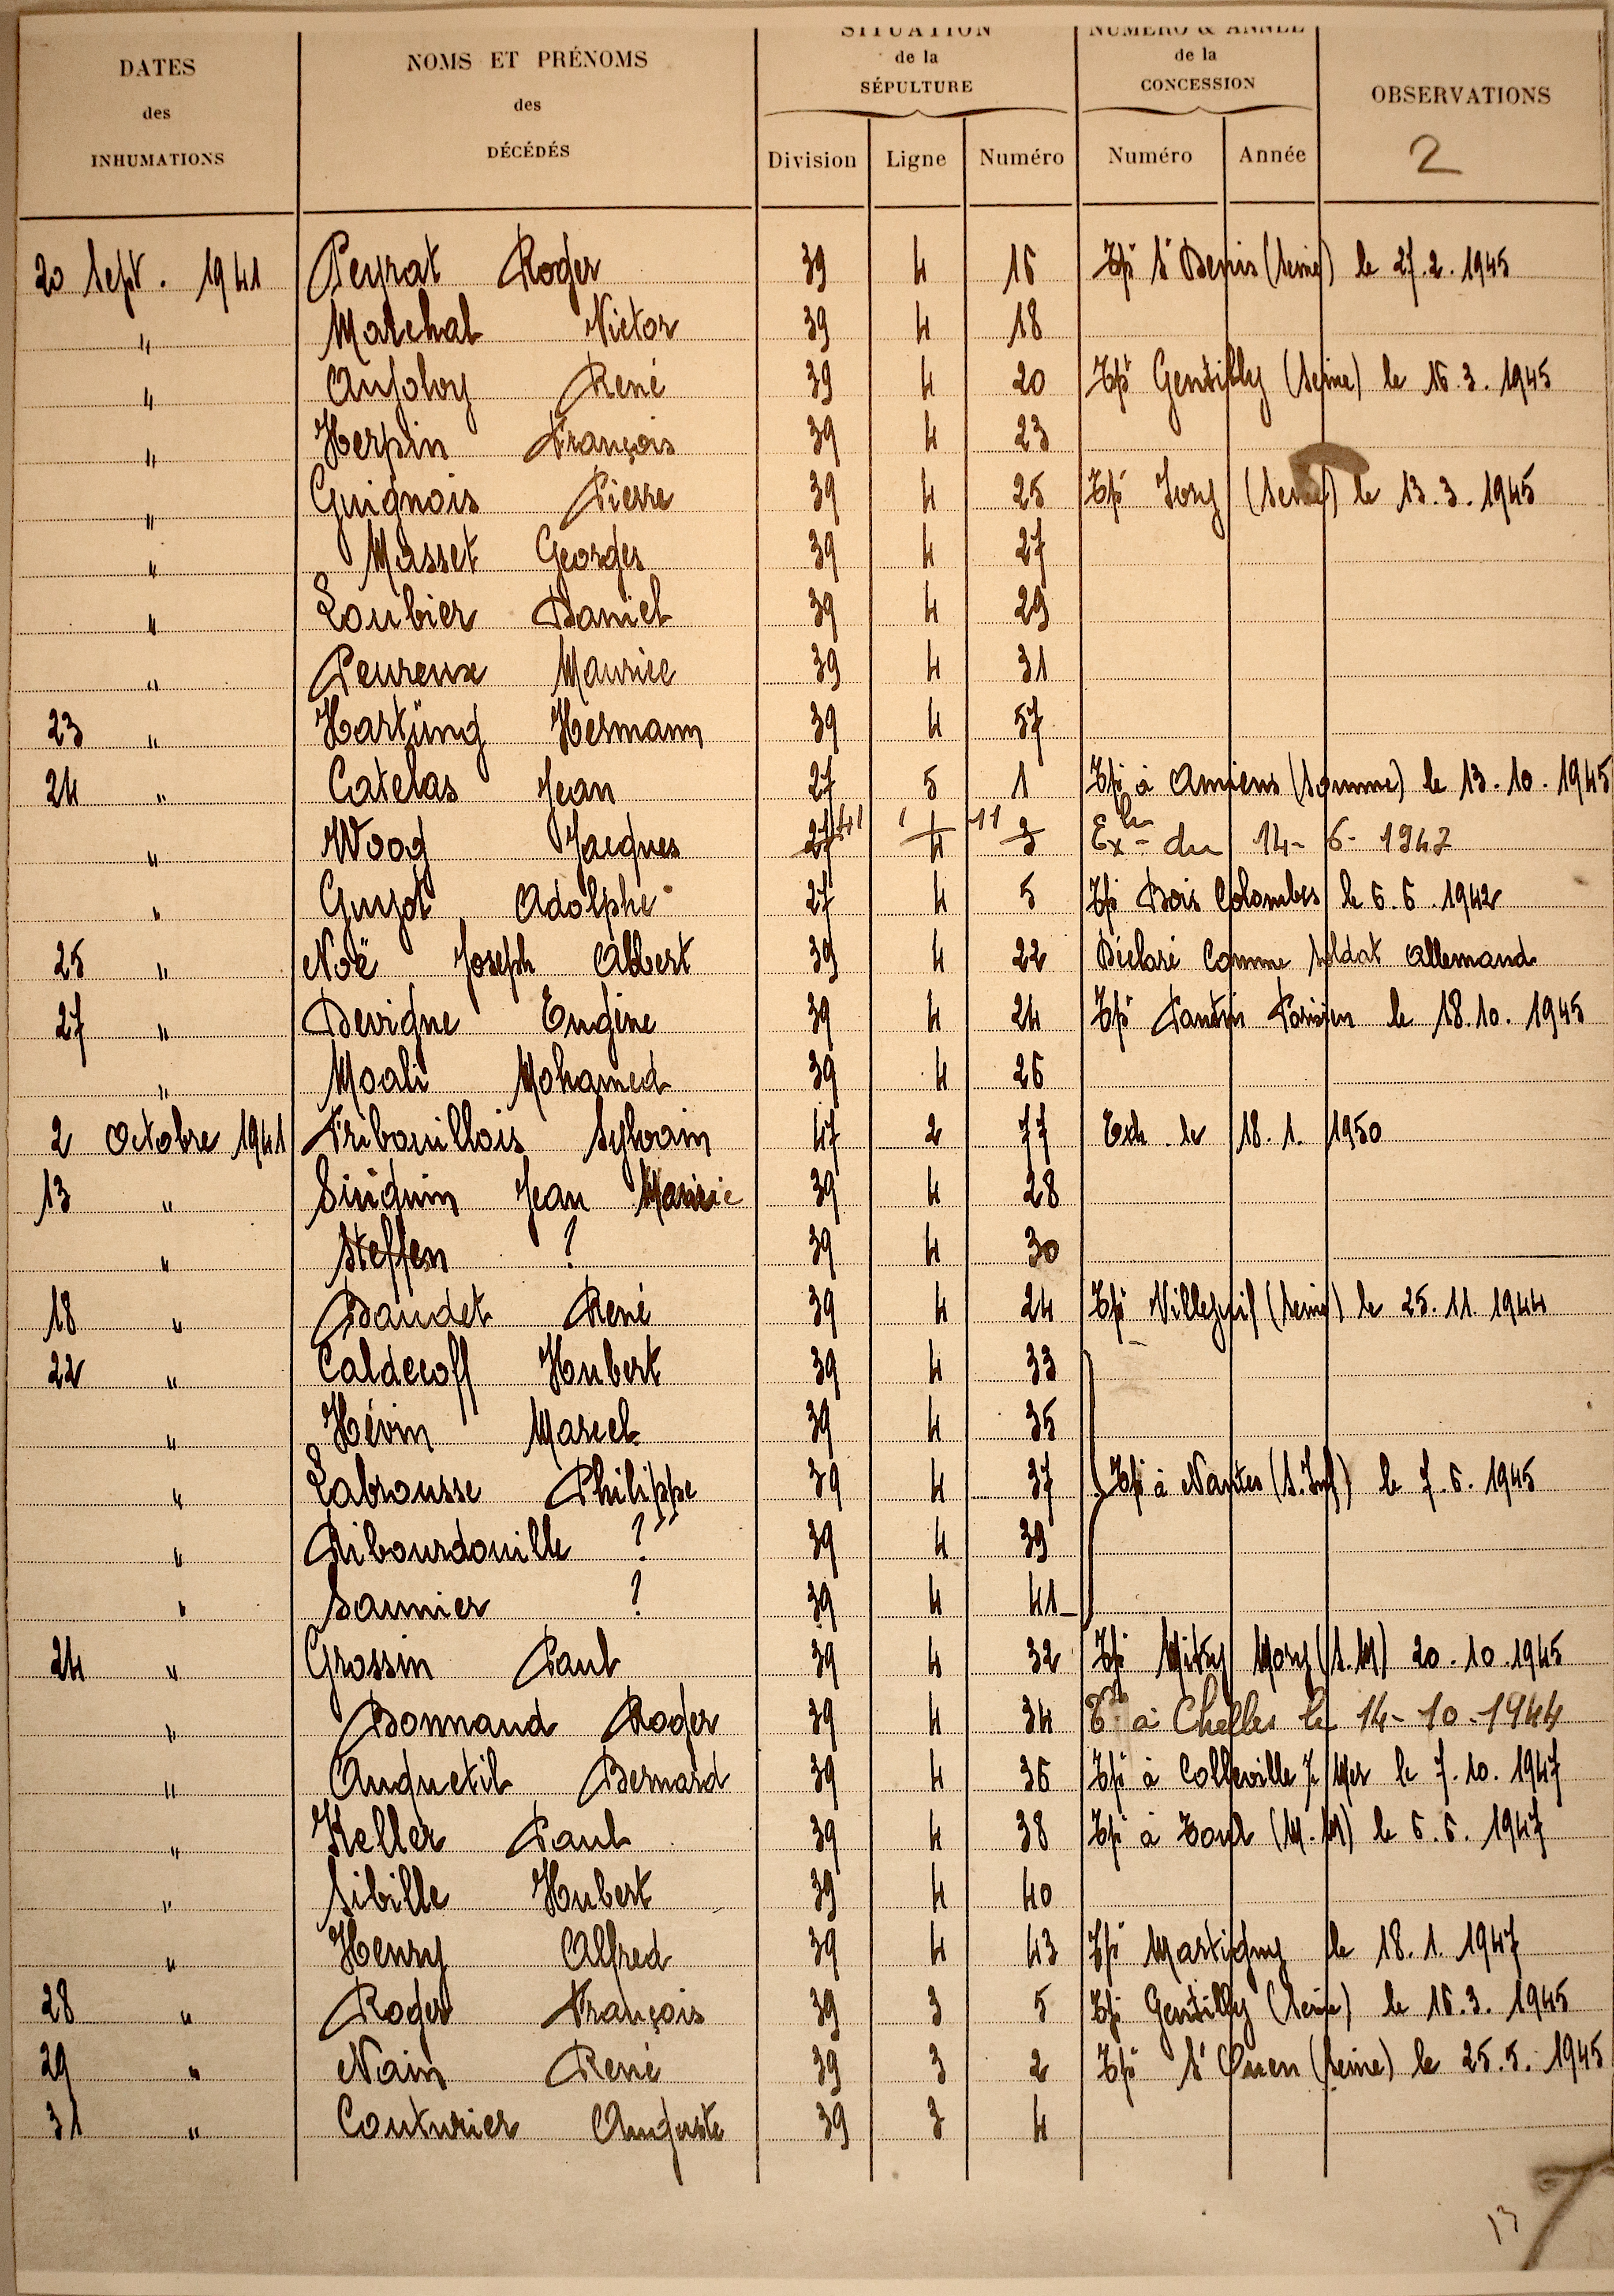 DATES des INHUMATIONS
NOMS ET PRÉNOMS des DÉCÉDÉS
SITUATION de la SÉPULTURE
NUMÉRO & ANNÉE de la CONCESSION
OBSERVATIONS
2
Division Ligne Numéro Numéro Année
20 Sept. 1941 Peyrat Roger 39 4 16 Tpé St Denis (Seine) le 27.2.1945
" Marchal Victor 39 4 18
" Anjolvy René 39 4 20 Tpé Gentilly (Seine) le 16.3.1945
" Herpin François 39 4 23
" Guignois Pierre 39 4 25 Tpé Ivry (Seine) le 13.3.1945
" Masset Georges 39 4 27
" Loubier Daniel 39 4 29
" Peureux Maurice 39 4 31
23 " Hartüng Hermann 39 4 57
24 " Catelas Jean 27 5 1 Tpé à Amiens (Somme) le 13.10.1945
" Woog Jacques 27 41 4 11 3 Exh du 14-6-1947
" Guyot Adolphe 27 4 5 Tpé Bois Colombes le 6.6.1942
25 " Noë Joseph Albert 39 4 22 Déclaré Comme Soldat Allemand
27 " Devigne Eugène 39 4 24 Tpé Pantin Parisien le 18.10.1945
" Moali Mohamed 39 4 26
2 Octobre 1941 Fribouillois Sylvain 47 2 77 Exh. le 18.1.1950
13 " Sinquin Jean Marie 39 4 28
" Steffen ? 39 4 30
18 " Baudet René 39 4 24 Tpé Villejuif (Seine) le 25.11.1944
22 " Caldecoff Hubert 39 4 33
" Hévin Marcel 39 4 35
" Labrousse Philippe 39 4 37 Tpé à Nantes (S. Inf) le 7.6.1945
" Ribourdouille ? 39 4 39
" Saunier ? 39 4 41
24 " Grossin Paul 39 4 32 Tpé Mitry Mory (S.M) 20.10.1945
" Bonnand Roger 39 4 34 Té à Chelles le 14-10-1944
" Anquetil Bernard 39 4 36 Tpé à Colleville s/ Mer le 7.10.1947
" Keller Paul 39 4 38 Tpé à Toul (M.M) le 6.6.1947
" Sibille Hubert 39 4 40
" Henry Alfred 39 4 43 Tpé Martigny le 18.1.1947
28 " Roger François 39 3 5 Tpé Gentilly (Seine) le 16.3.1945
29 " Nain René 39 3 2 Tpé St Ouen (Seine) le 25.5.1945
31 " Couturier Auguste 39 3 4
13